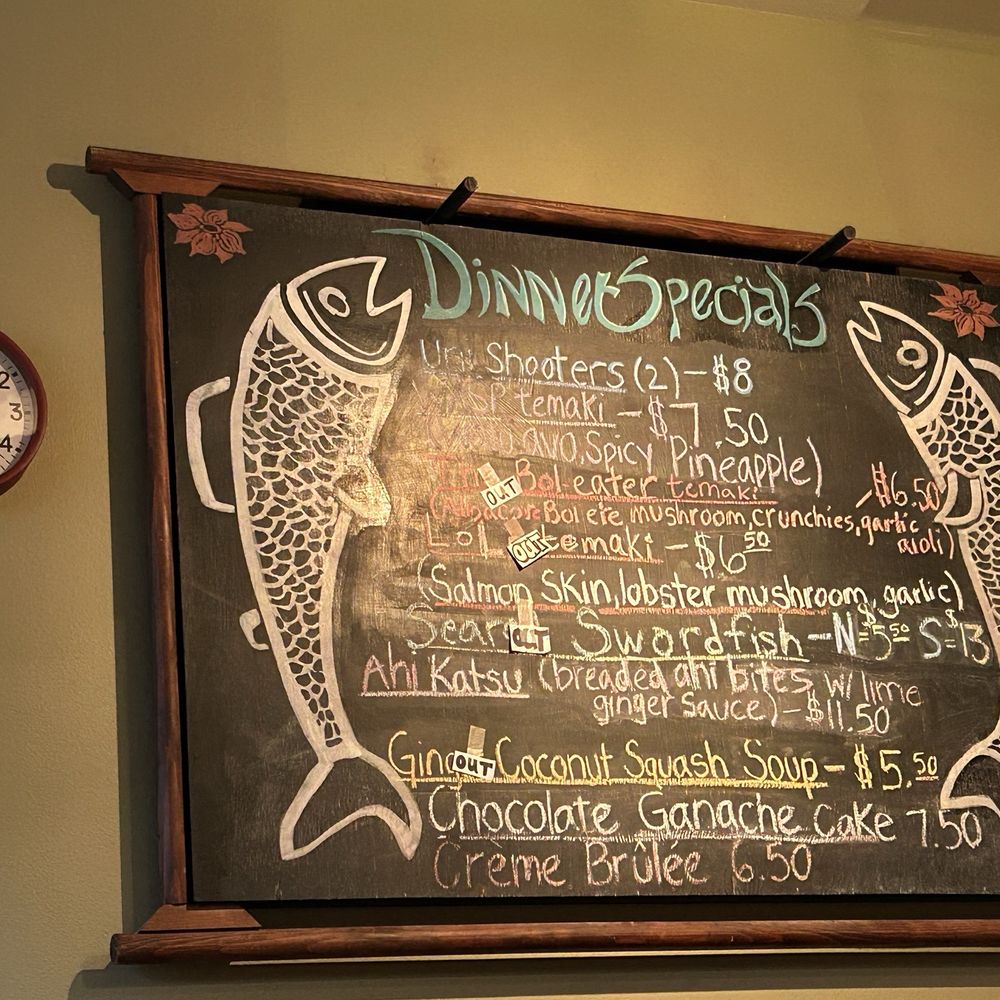 2
3
4
Dinner Specials
Uni Shooters (2) - $8
SP temaki - $7.50
avo, Spicy Pineapple)
OUT Bol-eater temaki
$6.50
(Albacore Bolete mushroom, crunchies, garlic
aioli)
OUT temaki - $6 50
(Salmon Skin, lobster mushroom, garlic)
OUT Swordfish - N=$5 50 S=$13
Ahi Katsu (breaded ahi bites w/ lime
ginger sauce) - $11.50
OUT Coconut Squash Soup - $5.50
Chocolate Ganache Cake 7.50
Crème Brûlée 6.50